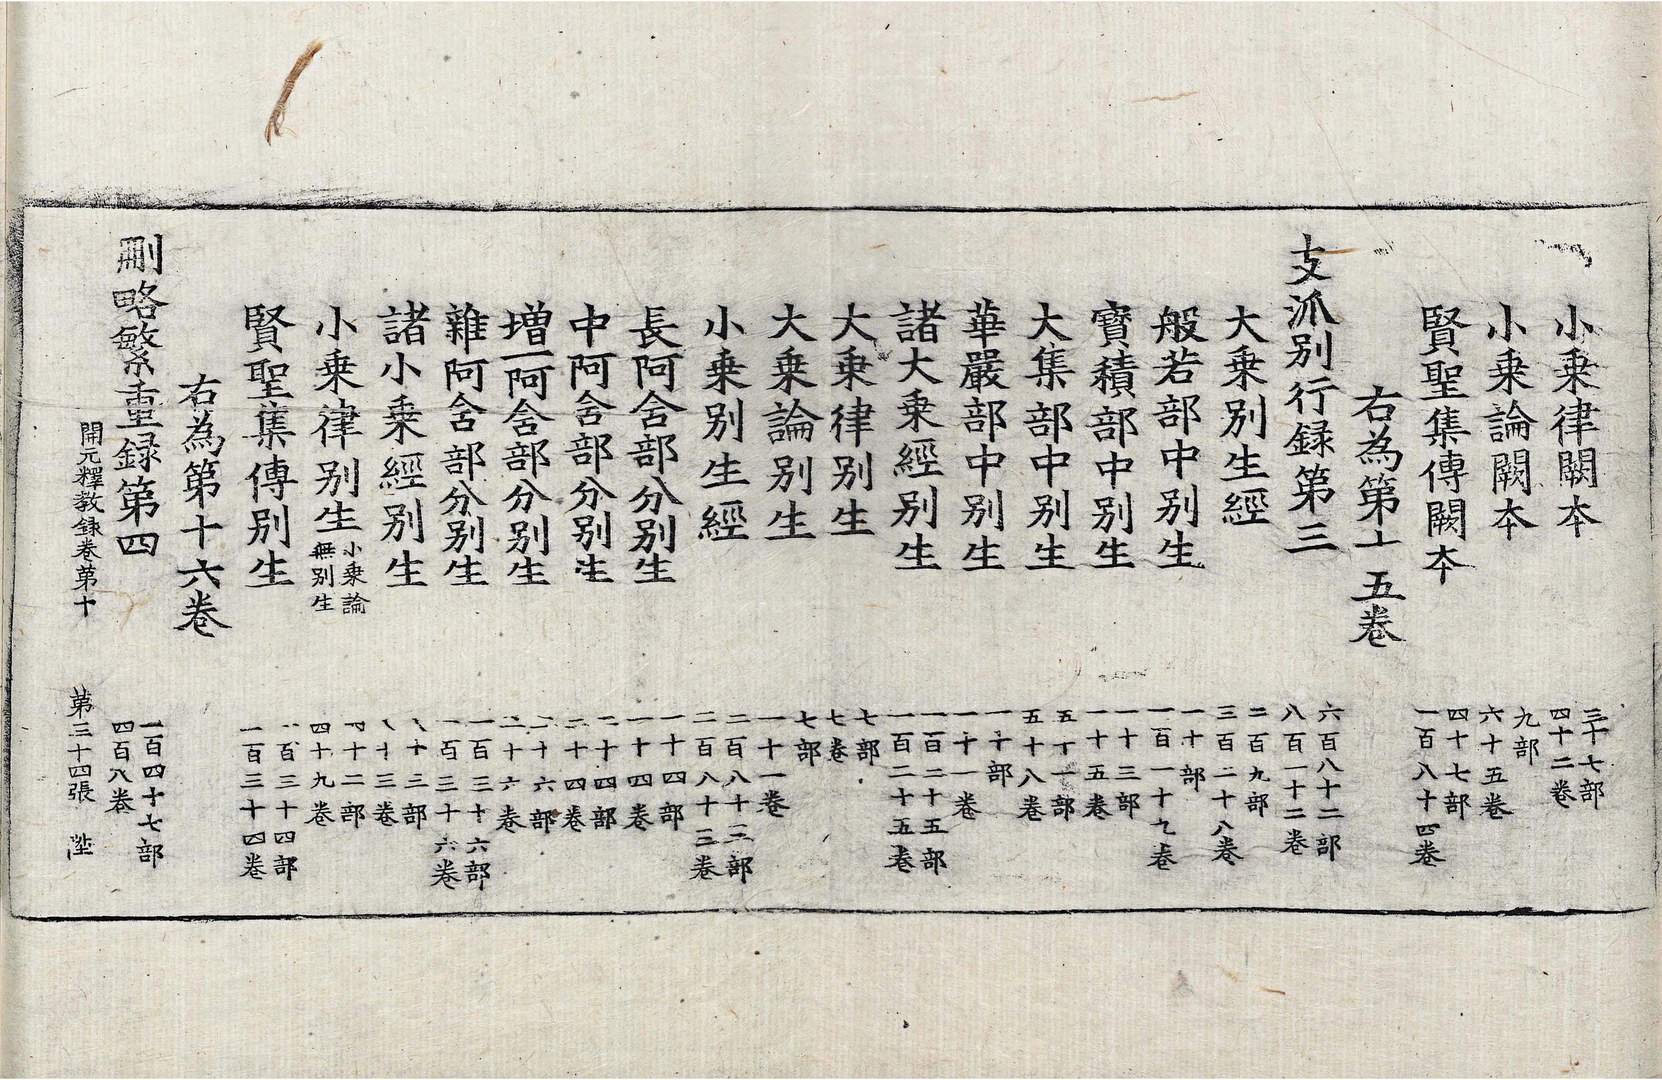 小乗律闕本 三十七部 四十二卷
小乗論闕本 九部 六十五卷
賢聖集傳闕本 四十七部 一百八十四卷
右為第十五卷
支派别行録第三 六百八十二部 八百一十二卷
大乗别生經 二百九部 三百二十八卷
般若部中别生 一十部 一百一十九卷
寶積部中别生 一十三部 一十五卷
大集部中别生 五十一部 五十八卷
華嚴部中别生 一十部 一十一卷
諸大乗經别生 一百二十五部 一百二十五卷
大乗律别生 七部 七卷
大乗論别生 七部 一十一卷
小乗别生經 二百八十二部 二百八十三卷
長阿含部分别生 一十四部 一十四卷
中阿含部分别生 二十四部 二十四卷
増一阿含部分别生 二十六部 二十六卷
雜阿含部分别生 一百三十六部 一百三十六卷
諸小乗經别生 八十三部 八十三卷
小乗律别生 小乗論無别生 四十二部 四十九卷
賢聖集傳别生 一百三十四部 一百三十四卷
右為第十六卷
刪略繁重録第四 一百四十七部 四百八卷
開元釋教録卷第十 第三十四張